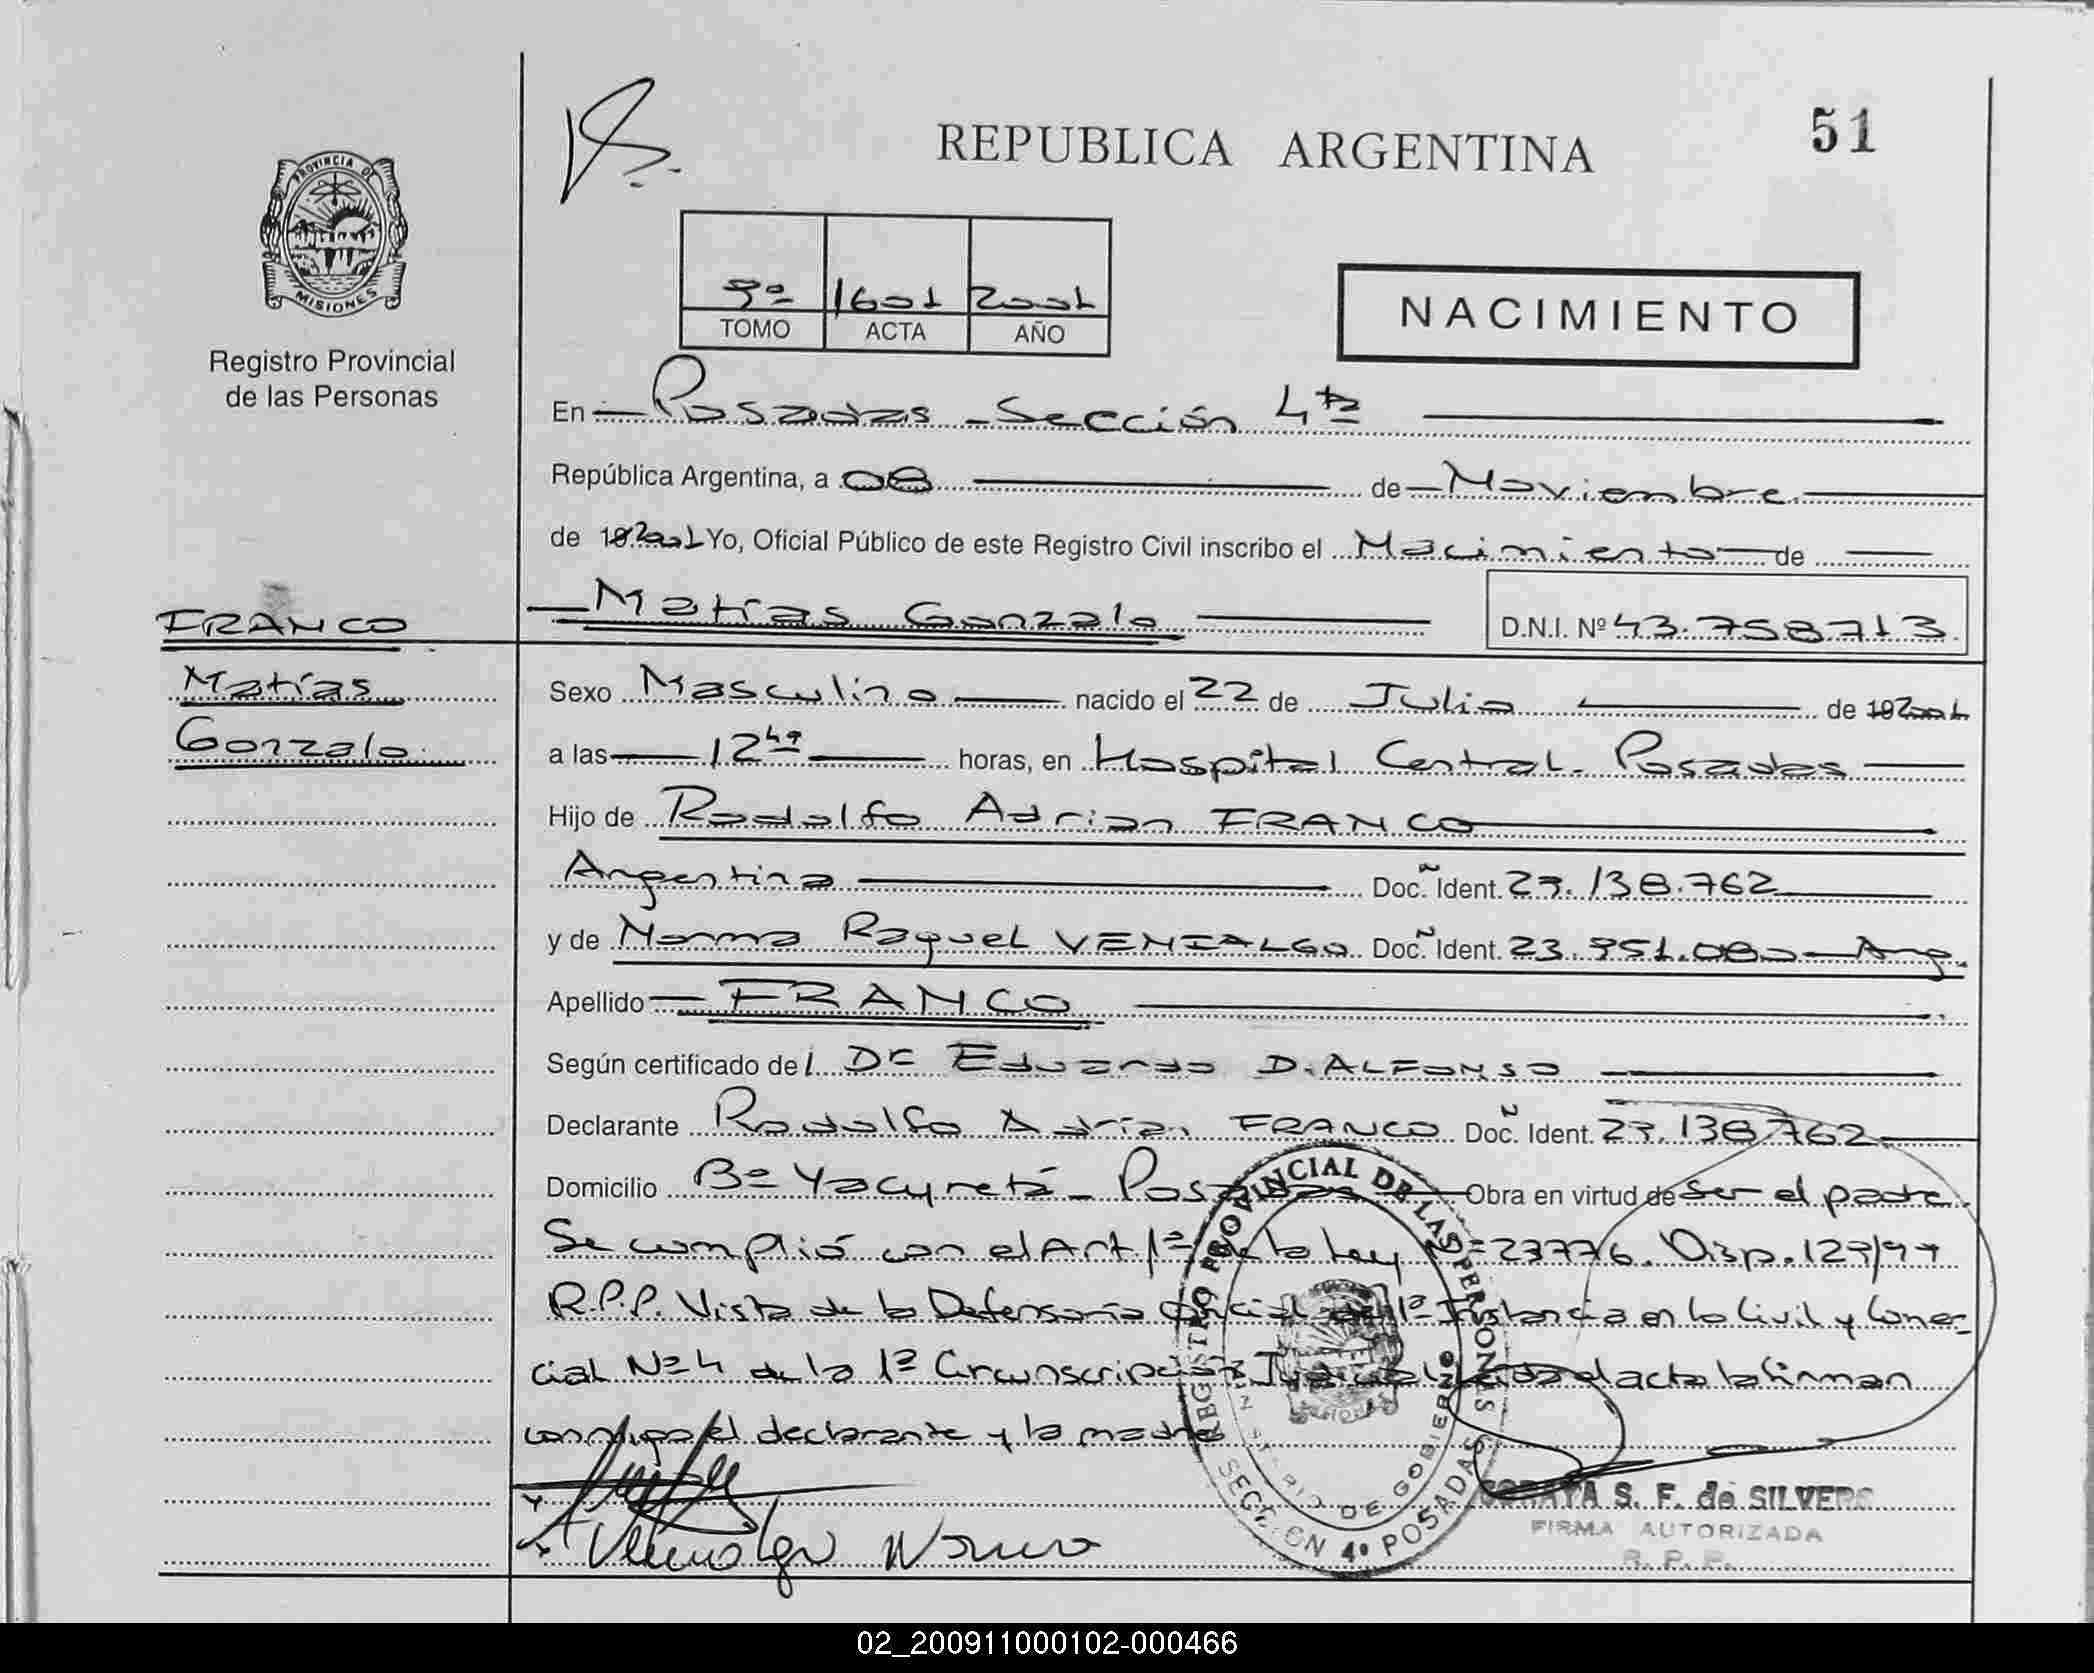 51
REPUBLICA ARGENTINA
PROVINCIA DE
MISIONES
Registro Provincial
de las Personas
1601 2001
TOMO ACTA AÑO
NACIMIENTO
En Posadas - Sección 4ta
República Argentina, a 08 de Noviembre
de 19 2001 Yo, Oficial Público de este Registro Civil inscribo el Nacimiento de
Matías Gonzalo D.N.I. Nº 43.758713
FRANCO
Matías
Gonzalo
Sexo Masculino nacido el 22 de Julio de 19 2001
a las 12 hs horas, en Hospital Central - Posadas
Hijo de Rodolfo Adrian FRANCO
Argentina Doc. Ident. 23.138.762
y de Norma Raquel VENIALGO Doc. Ident. 23.951.080 - Arg.
Apellido FRANCO
Según certificado del Dr Eduardo D. ALFONSO
Declarante Rodolfo Adrian FRANCO Doc. Ident. 23.138762
Domicilio Bº Yacyretá - Posadas Obra en virtud de ser el padre
Se cumplió con el Art. 1º de la Ley Nº 23776. Disp. 129/97
R.P.P. Vista de la Defensoría Oficial de 1ª Instancia en lo Civil y Comer-
cial Nº 4 de la 1ª Circunscripción Judicial leída el acta la firman
conmigo el declarante y la madre
Venialgo Norma
REGISTRO PROVINCIAL DE LAS PERSONAS
MINISTERIO DE GOBIERNO
SECCION 4º POSADAS
SORAYA S. F. de SILVERO
FIRMA AUTORIZADA
R. P. P.
02_200911000102-000466